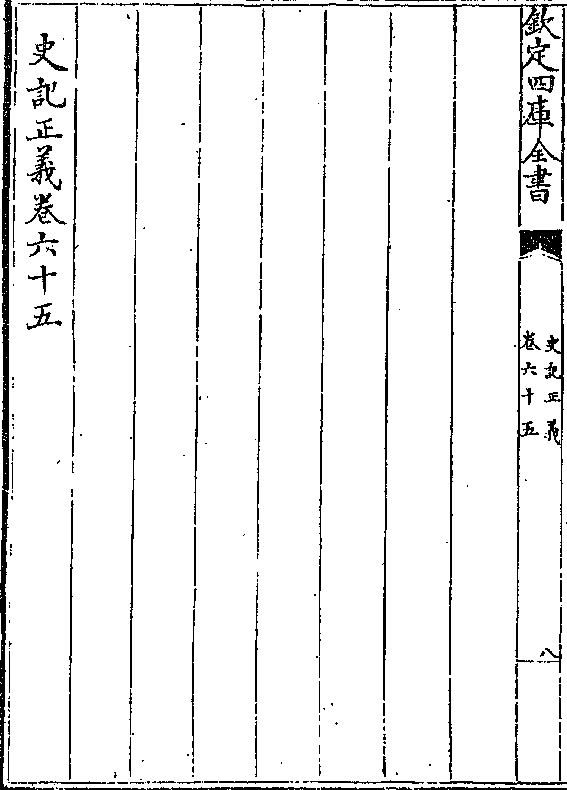 欽定四庫全書
史記正義
卷六十五
八
史記正義卷六十五